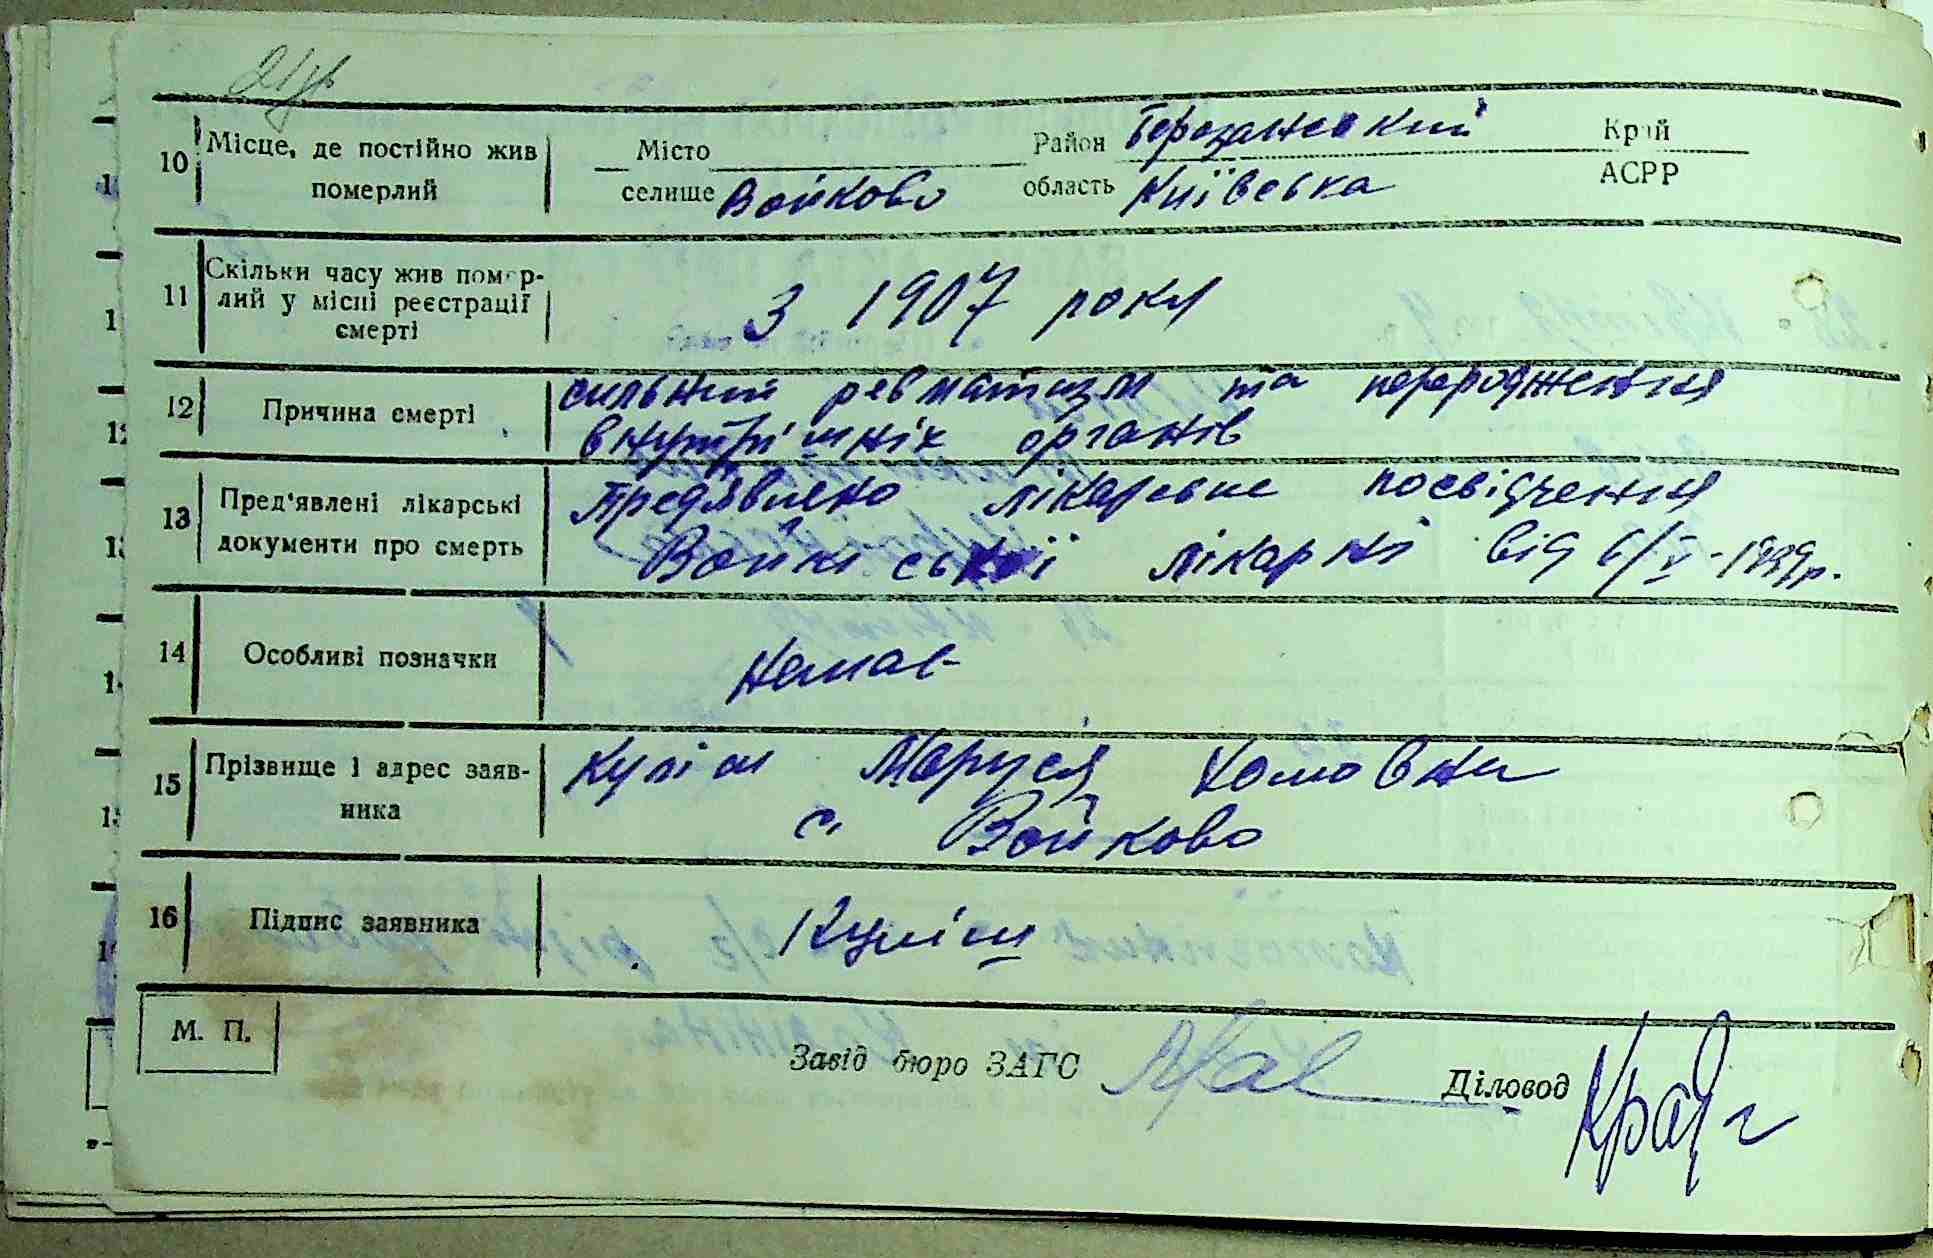 10 Місце, де постійно жив померлий
Місто
селище Войково
Район Березанский
область Київська
Край
АСРР
11 Скільки часу жив померлий у місці реєстрації смерті
З 1907 року
12 Причина смерті
сильний ревматизм та переродження
внутрішніх органів
13 Пред'явлені лікарські документи про смерть
Предявлено лікарське посвідчення
Войківської лікарні від 6/V-1939р.
14 Особливі позначки
Немає
15 Прізвище і адрес заявника
Куліш Маруся Хомовна
с. Войково
16 Підпис заявника
Куліш
М. П.
Завід бюро ЗАГС
Діловод